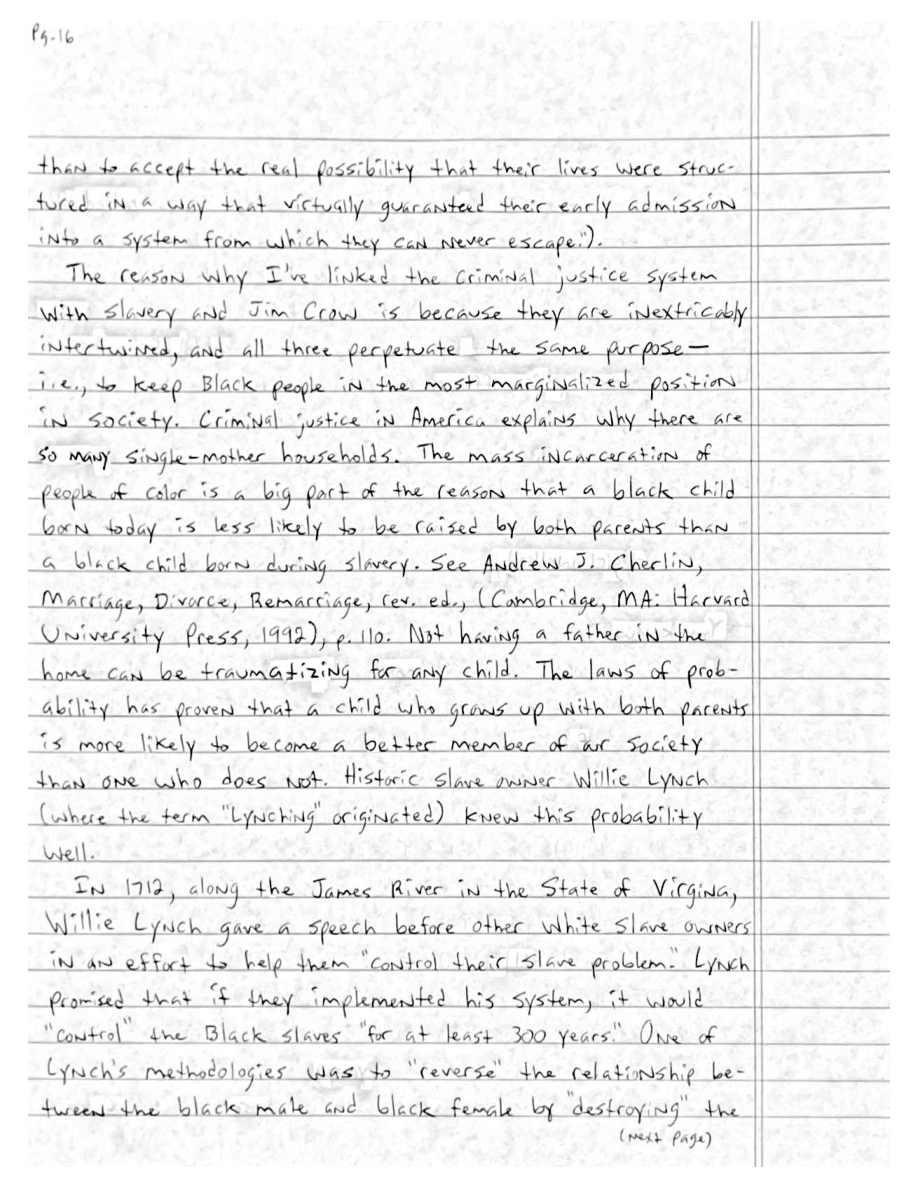 Pg. 16
than to accept the real possibility that their lives were struc-
tured in a way that virtually guaranteed their early admission
into a system from which they can never escape.").
The reason why I've linked the criminal justice system
with slavery and Jim Crow is because they are inextricably
intertwined, and all three perpetuate the same purpose—
i.e., to keep Black people in the most marginalized position
in society. Criminal justice in America explains why there are
so many single-mother households. The mass incarceration of
people of color is a big part of the reason that a black child
born today is less likely to be raised by both parents than
a black child born during slavery. See Andrew J. Cherlin,
Marriage, Divorce, Remarriage, rev. ed., (Cambridge, MA: Harvard
University Press, 1992), p. 110. Not having a father in the
home can be traumatizing for any child. The laws of prob-
ability has proven that a child who grows up with both parents
is more likely to become a better member of our society
than one who does not. Historic slave owner Willie Lynch
(where the term "Lynching" originated) knew this probability
well.
In 1712, along the James River in the State of Virgina,
Willie Lynch gave a speech before other white slave owners
in an effort to help them "control their slave problem." Lynch
promised that if they implemented his system, it would
"control" the Black slaves "for at least 300 years." One of
Lynch's methodologies was to "reverse" the relationship be-
tween the black male and black female by "destroying" the
(next page)